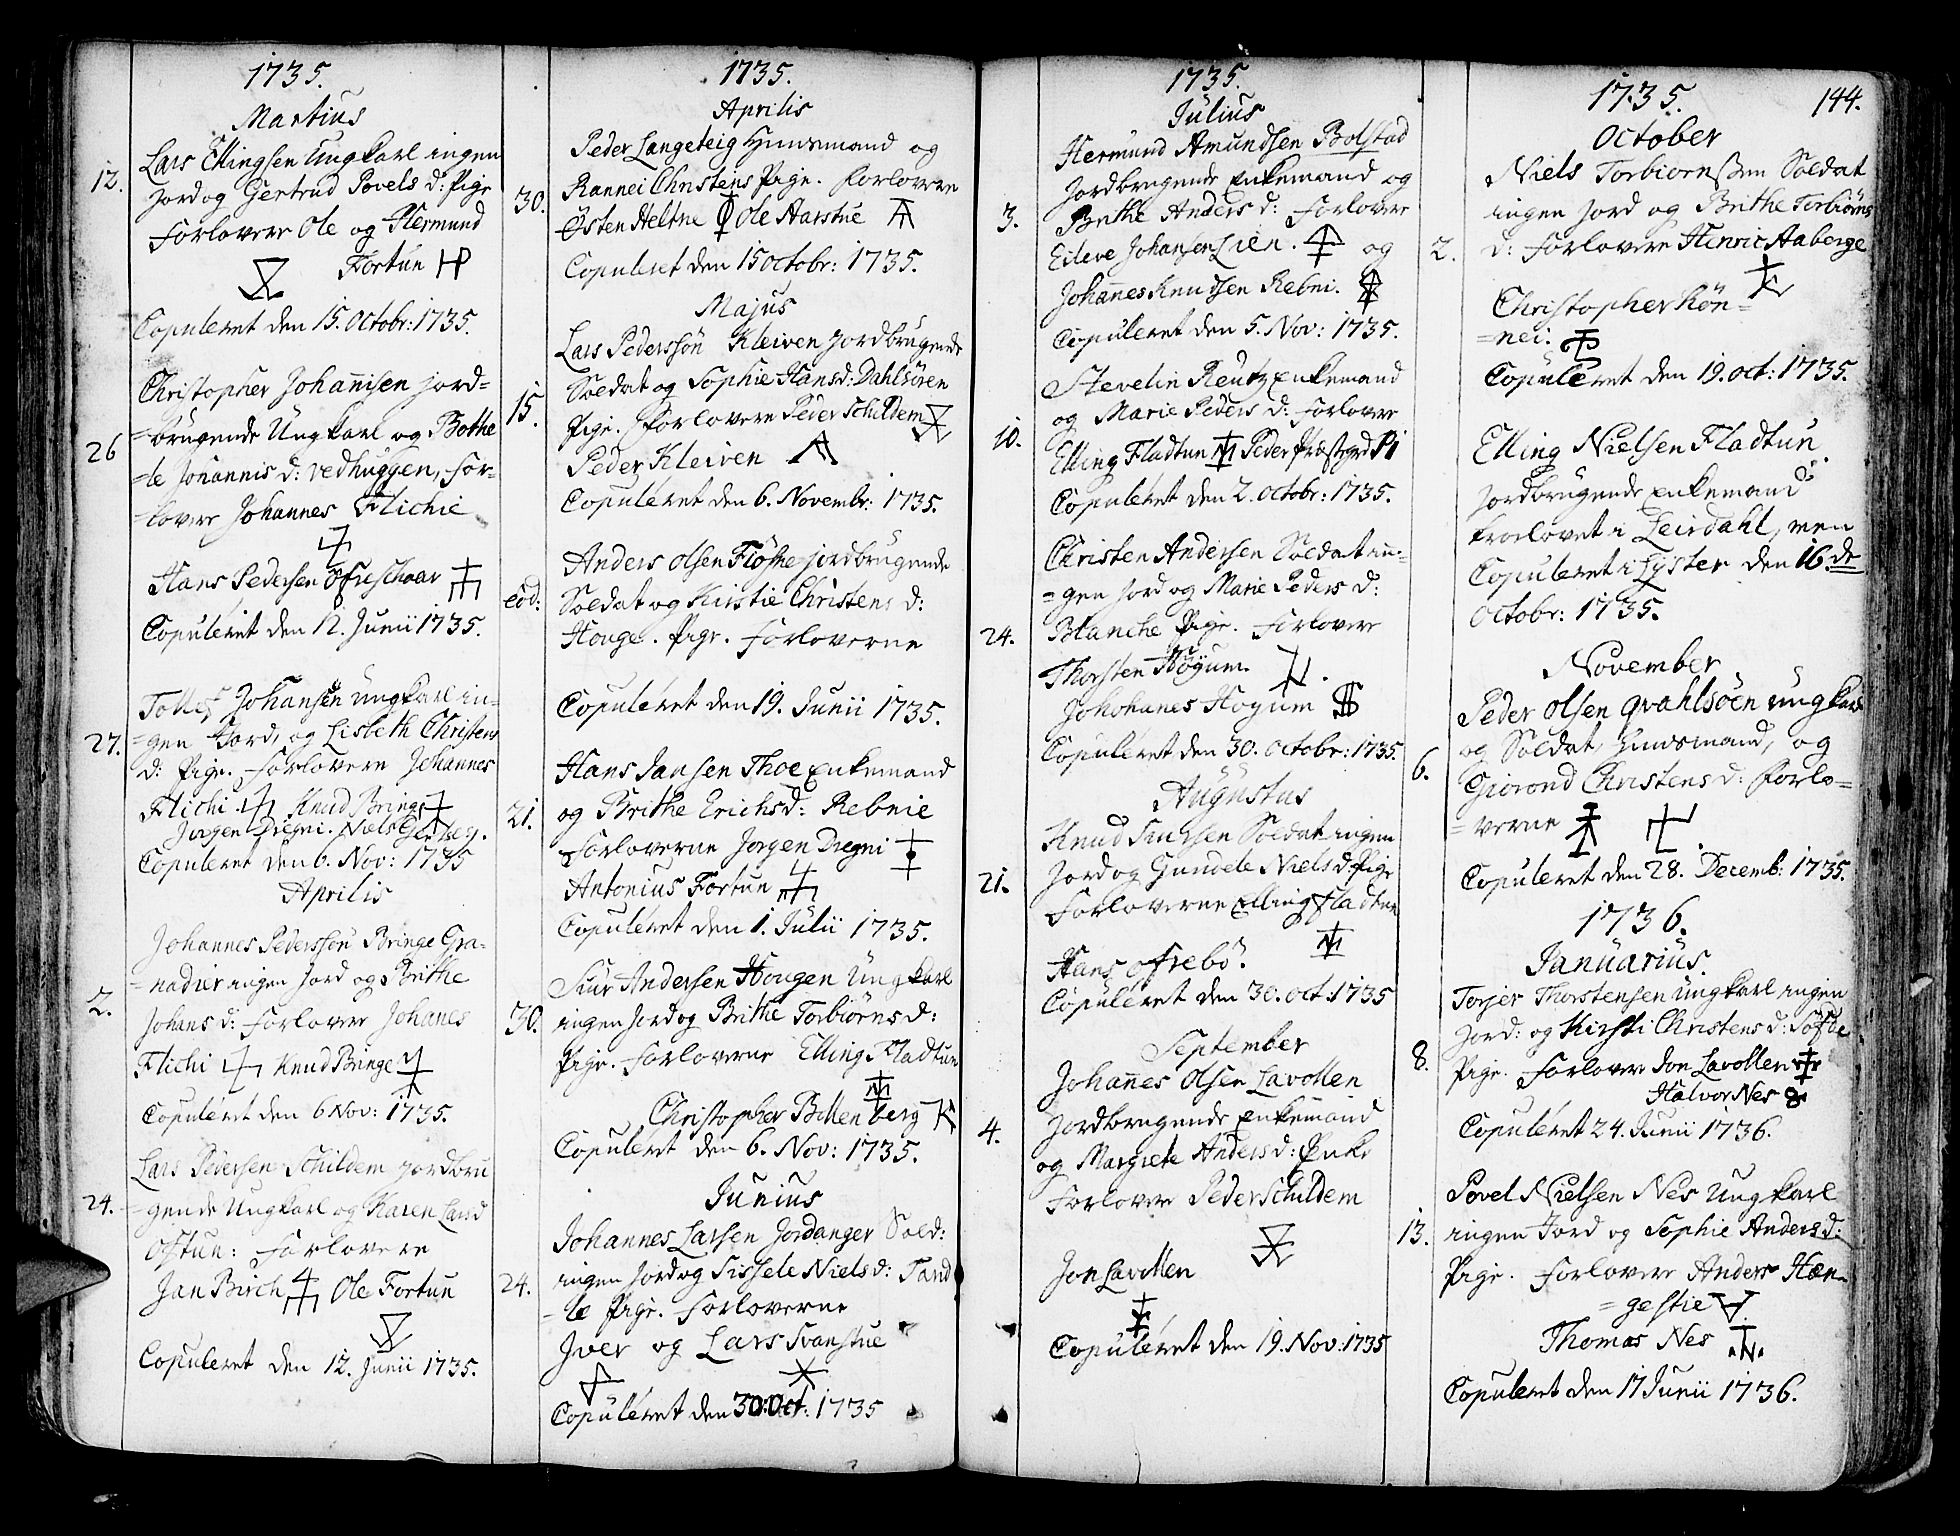 1735.
Martius
12. Lars Ellingsen Ungkarl ingen
Jord og Gjertrud Povels d: Pige
Forlovere Ole og Hermund
Fortun
Copuleret den 15. Octobr: 1735.
Christopher Johannisen jord=
26 =brugende Ungkarl og Bothe
=le Johannis d: Vedhuggen, For=
=lovere Johannes Flichie
Hans Pedersen Ofreschaar
Copuleret den 12. Junii 1735.
Johansen Ungkarl in=
27. =gen Jord, og Lisbeth Christens
d: Pige. Forlovere Johannes
Flichi Knud Bringe
Jørgen Dregni. Niels
Copuleret den 6. Nov: 1735
Aprilis
Johannes Pederssøn Bringe Gra=
2. =nadier ingen Jord og Brithe
Johans d: Forlovere Johanes
Flichi Knud Bringe
Copuleret den 6 Nov: 1735.
Lars Pedersen Schildem jordbru
24. =gende Ungkarl og Karen Larsd
Ostun: Forlovere
Jan Birch Ole Fortun
Copuleret den 12. Junii 1735.
1735.
Aprilis
Peder Langeteig Huusmand og
30. Rannei Christens Pige. Forlovere
Østen Heltne Ole Aarstue
Copuleret den 15 octobr: 1735.
Majus
Lars Pederssøn Kleiven Jordbrugende
15. Soldat og Sophie Hansd: Dahlsøren
Pige. Forlovere Peder Schildem
Peder Kleiven
Copuleret den 6. Novembr: 1735.
Anders Olsen Fløthe jordbrugende
eod: Soldat og Kirstie Christens d:
Houge. Pige. Forloverne
Copuleret den 19. Junii 1735.
Hans Jansen Thoe Enkemand
21. og Brithe Erichsd: Rebnie
Forloverne Jørgen Dregni
Antonius Fortun
Copuleret den 1. Julii 1735.
Siur Andersen Hougen Ungkarl
30. ingen Jord og Brithe Torbiørns d:
Pige. Forloverne Elling Fladtun
Christopher Bollenberg
Copuleret den 6. Nov: 1735.
Junius
Johannes Larsen Jordanger Sold:
24. ingen Jord og Sissele Niels d: Sand
=le Pige. Forloverne
Iver og Lars Svanstue
Copuleret den 30 Oct: 1735
1735.
Julius
Hermund Amundsen Bolstad
Jordbrugende Enkemand og
3. Brithe Anders d: Forlovere
Eileve Johansen Lien. og
Johannes Knudsen Rebni.
Copuleret den 5. Nov: 1735.
Stevelin Reutz Enkemand
og Marie Peders d: Forlovere
10. Elling Fladtun Peder Præstgrd
Copuleret den 2. Octobr: 1735.
Christen Andersen Soldat in=
=gen Jord og Marie Peders d:
24. Blanche Pige. Forlovere
Thorsten Høyum.
Johohanes Hoyum
Copuleret den 30. octobr: 1735.
Augustus
Knud Siursen Soldat ingen
21. Jord og Gundele Niels d: Pige
Forloverne Elling Fladtun
Hans Ofrebø.
Copuleret den 30. oct 1735
September
Johannes Olsen Lavollen
4. Jordbrugende Enkemand
og Margrete Anders d: Enke
Forlovere Peder Schildem
Jon Lavollen
Copuleret den 19. Nov: 1735
1735. 144.
October
Niels Torbiornssen Soldat
ingen Jord og Brithe Torbiørns
2. d: Forlovere Henric Aaberge
Christopher Røn=
=nei.
Copuleret den 19. oct: 1735.
Elling Nielsen Fladtun
Jordbrugende Enkemand
trolovet i Leirdahl, men
Copuleret i Lyster den 16.de
octobr: 1735.
November
Peder Olsen Qvahlsøen Ungkarl
og Soldat, Huusmand, og
6. Giorond Christens d: Forlo=
=verne
Copuleret den 28. Decemb: 1735.
1736.
Januarius.
Torjer Thorstensen Ungkarl ingen
Jord: og Kirsti Christens d:
8. Pige. Forlovere Jon Lavollen
Halvor Nes
Copuleret 24. Junii 1736.
Povel Nielsen Nes Ungkarl
13. ingen Jord og Sophie Anders d:
Pige. Forlovere Anders Hæn=
=gestie
Thomas Nes
Copuleret den 17 Junii 1736.